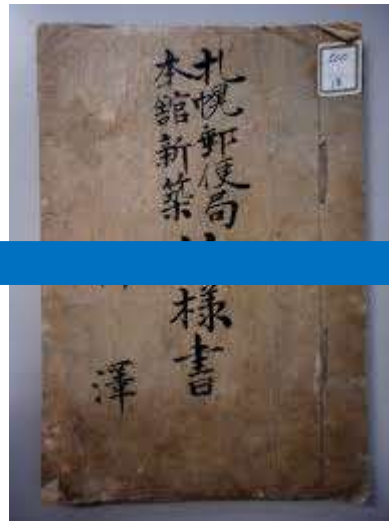 札幌郵便局
本舘新築
様書
澤